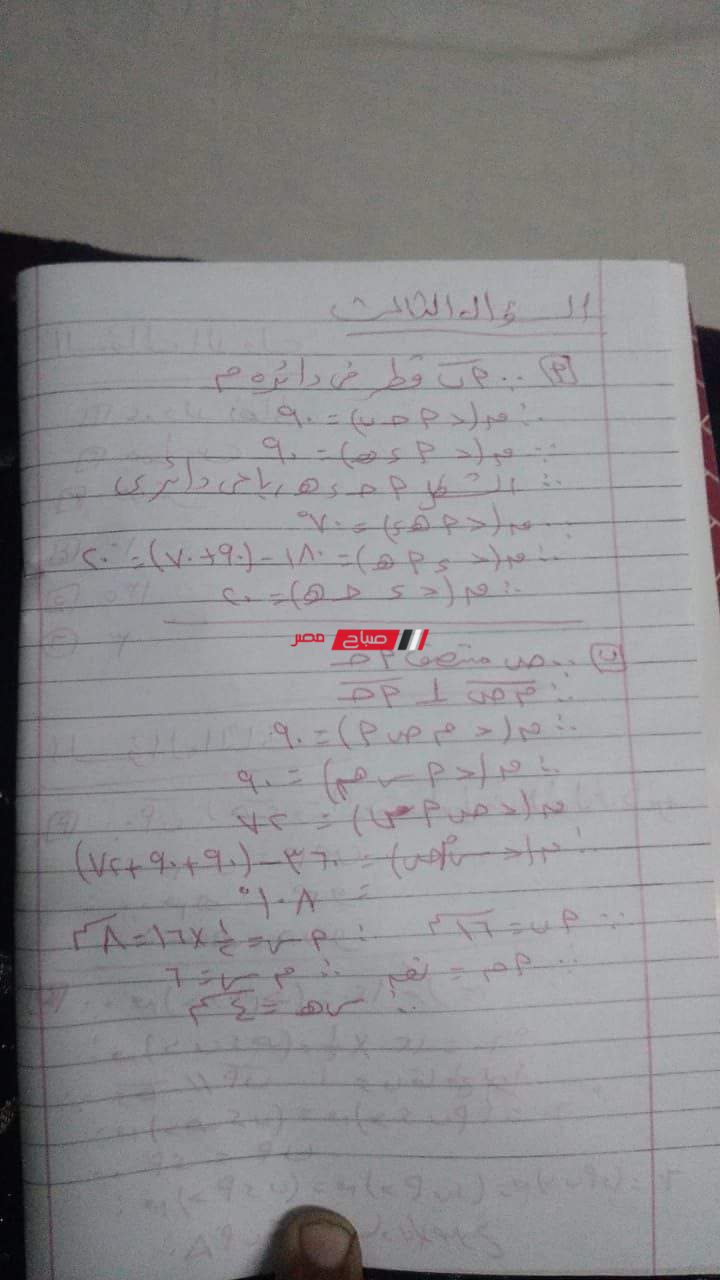 السؤال الثالث
[أ] ∵ أب قطر فى دائرة م
∴ ق(< أ حـ ب) = ٩٠
∵ ق(< أ ى هـ) = ٩٠
∴ الشكل أ حـ ى هـ رباعى دائرى
∵ ق(< أ هـ ى) = ٧٠°
∴ ق(< ى أ هـ) = ١٨٠ - (٩٠ + ٧٠) = ٢٠°
∴ ق(< ى حـ هـ) = ٢٠
صباح مصر
[ب] ∵ ص منتصف أ حـ
∴ م ص ⊥ أ حـ
∴ ق(< م ص أ) = ٩٠
∴ ق(< أ س م) = ٩٠
ق(< ص أ س) = ٧٢
∴ ق(< س م ص) = ٣٦٠ - (٩٠ + ٩٠ + ٧٢)
= ١٠٨°
∵ أ ب = ١٦ سم ∴ أ س = ½ × ١٦ = ٨ سم
∵ أ م = نق ∴ م س = ٦
∴ س هـ = ٤ سم